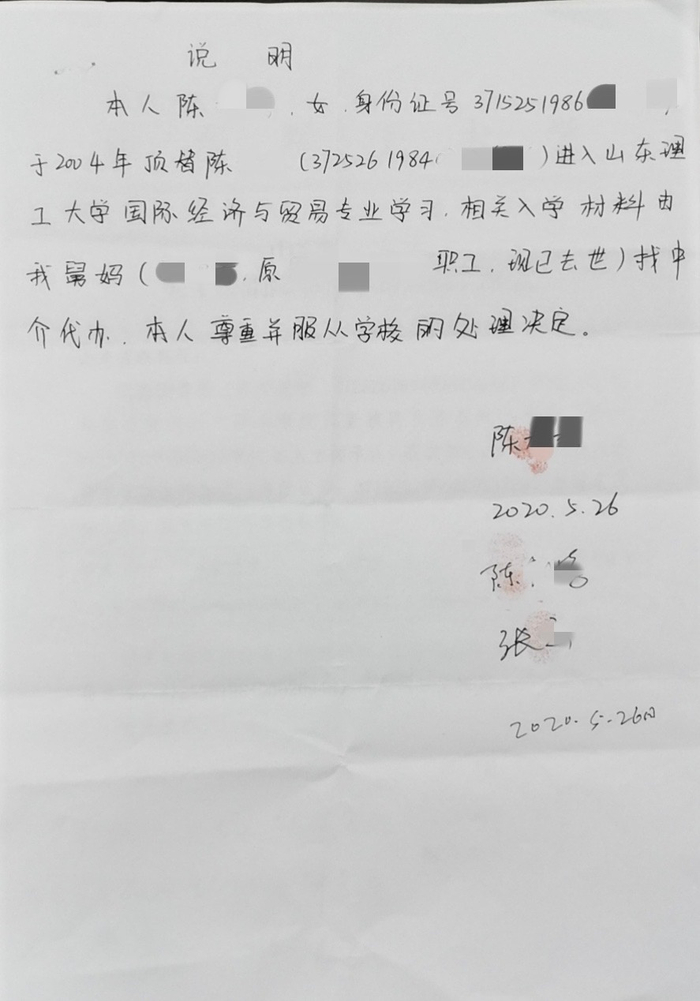 说 明
本人陈 ,女,身份证号3715251986 ,
于2004年顶替陈 (3725261984( )进入山东理
工大学国际经济与贸易专业学习,相关入学材料由
我舅妈( ,原 职工,现已去世)找中
介代办,本人尊重并服从学校的处理决定。
陈
2020.5.26
陈
张
2020.5.26日